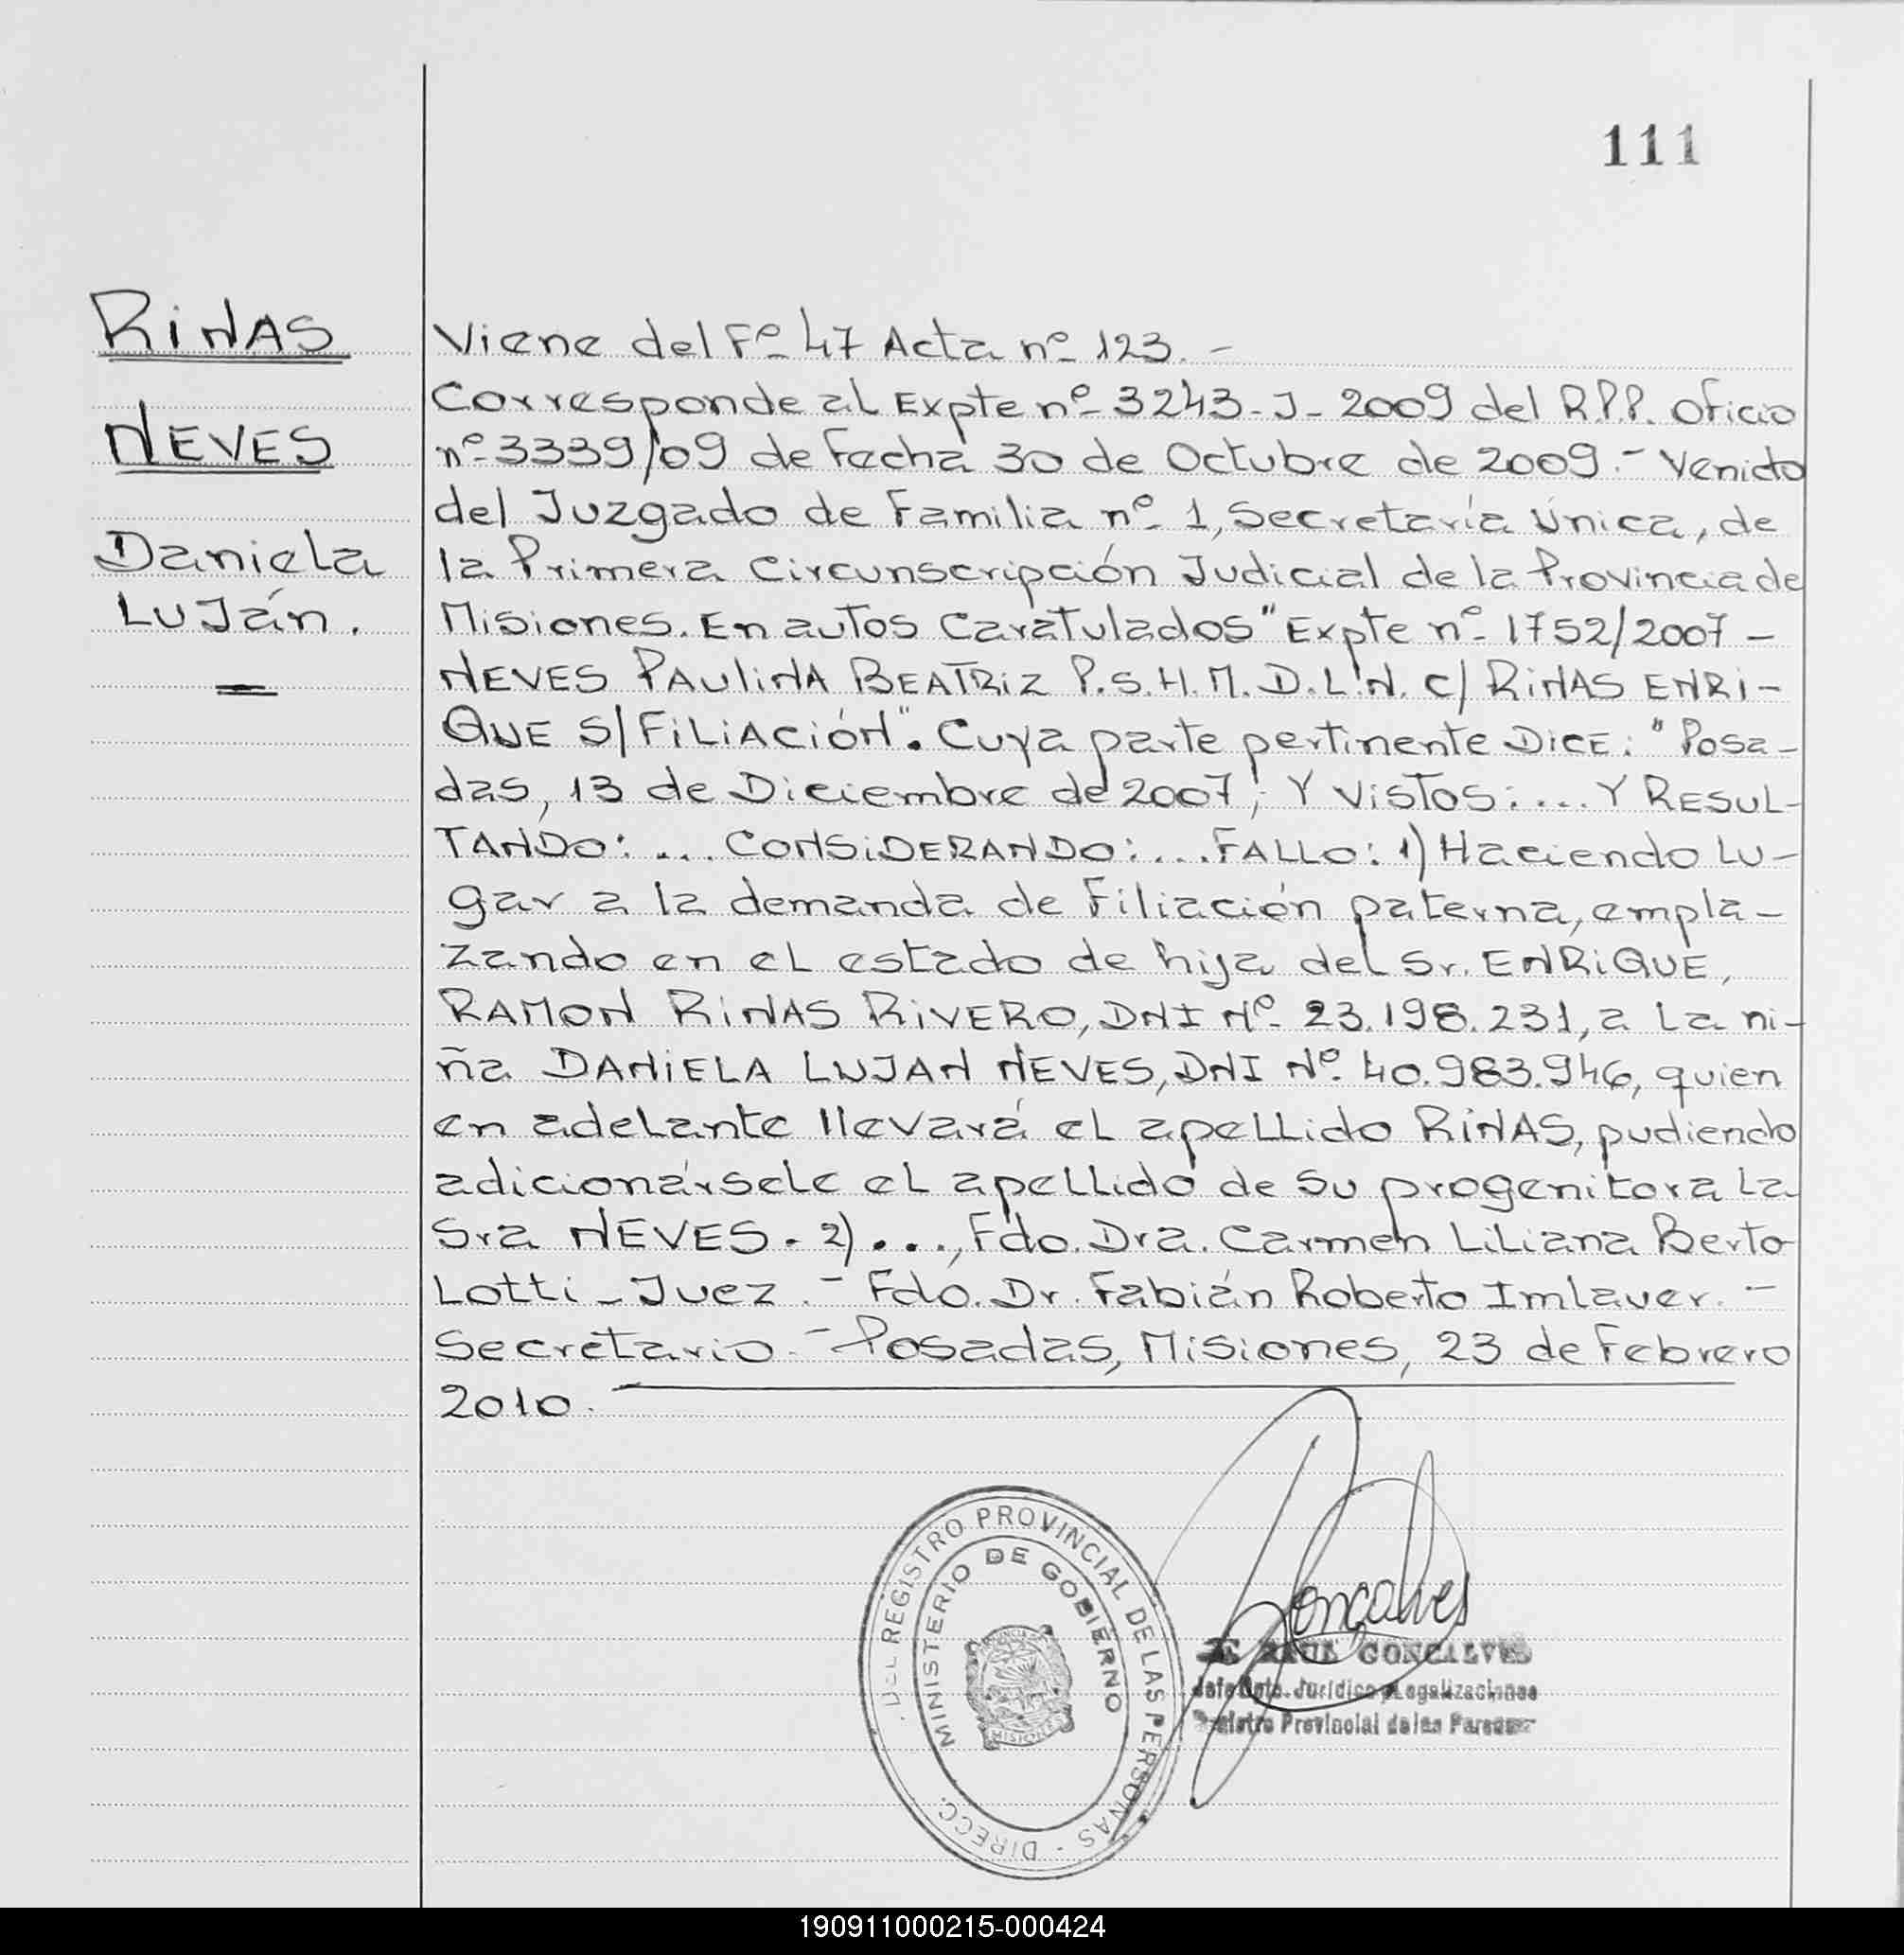 111
RINAS
NEVES
Daniela
Luján.
Viene del Fº 47 Acta nº 123.-
Corresponde al Expte nº 3243-J-2009 del R.P.P. Oficio
nº 3339/09 de Fecha 30 de Octubre de 2009.- Venido
del Juzgado de Familia nº 1, Secretaría Única, de
la Primera Circunscripción Judicial de la Provincia de
Misiones. En autos Caratulados "Expte nº 1752/2007 -
NEVES PAULINA BEATRIZ P.S.H.M.D.L.N. C/ RINAS ENRI-
QUE S/ FILIACIÓN". Cuya parte pertinente DICE: "Posa-
das, 13 de Diciembre de 2007; Y VISTOS:... Y RESUL-
TANDO: ... CONSIDERANDO: ... FALLO: 1) Haciendo Lu-
gar a la demanda de Filiación paterna, empla-
zando en el estado de hija del Sr. ENRIQUE,
RAMON RINAS RIVERO, DNI Nº 23.198.231, a la ni-
ña DANIELA LUJAN NEVES, DNI Nº 40.983.946, quien
en adelante llevará el apellido RINAS, pudiendo
adicionársele el apellido de su progenitora la
Sra NEVES. 2) ..., Fdo. Dra. Carmen Liliana Berto
Lotti - Juez.- Fdo. Dr. Fabián Roberto Imlauer.-
Secretario.- Posadas, Misiones, 23 de Febrero
2010.
DIRECC. DEL REGISTRO PROVINCIAL DE LAS PERSONAS -
MINISTERIO DE GOBIERNO
MISIONES
Goncalves
GONCALVES
Jefe Dpto. Jurídico y Legalizaciones
Registro Provincial de las Personas
190911000215-000424